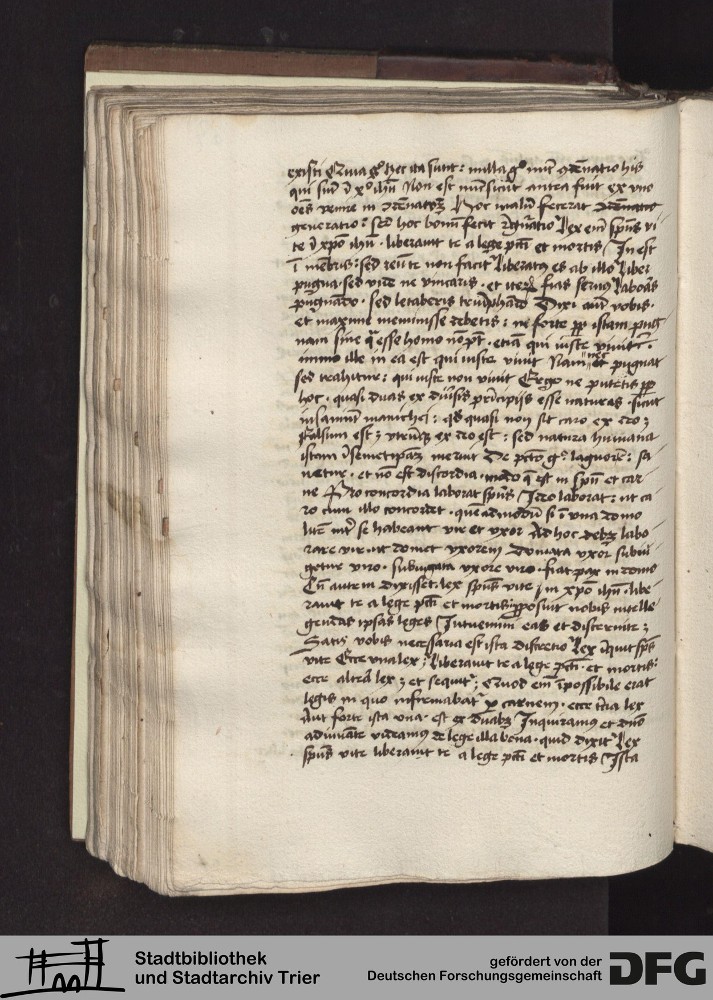 existi Quia gͦ hec ita sunt: nulla gͦ nūc ꝯdēnatio his
qui sūt ī xͦ ihū Non est
oēs venire in ꝯdēnatōꝫ Hoc malū fecerat ꝯdēnatio
generatio: sed hoc bonū fecit Lex em̄ spūs vi
te ī xpō ihū · liberauit te a lege pcti et mortis In est
ī mēbris: sed reū te non facit Liberatus es ab illo liber
pugna · sed vide ne vincaris · et iterū fias seruus Laboras
pugnando · sed letaberis triūphādo Dixi aūt vobis ·
et maxime meminisse debetis: ne forte ꝓp istam pug
nam sine qͣ esse homo nō pōt · etiā qui iuste viuit ·
immo ille in ea est qui iuste viuit Nam nec pugnat
sed trahitur: qui iuste non viuit Ergo ne putetis ꝓp
hoc · quasi duas ex diūsis principijs esse naturas · sicut
insaniūt manichei: qͦd quasi non sit caro ex deo ;
Falsum est ; vtrūqꝫ ex deo est: sed natura humana
istam ī semetipaꝫ meruit De pctō gͦ languore: sa
netur · et nō est discordia · modo qͣ est in spū et car
ne Pro concordia laborat spūs Ideo laborat: ut ca
ro cum illo concordet · quēadmodū si ī vna domo
lite int se habeant vir et vxor Ad hoc debꝫ labo
rare vir · ut domet vxorem Domata vxor subiu
getur viro · subiugata vxore viro · fiat pax in domo
Cū autem dixisset · lex spūs vite in xpō ihū · libe
rauit te a lege pcti et mortis: ꝓposuit nobis intelle
gendas ipsas leges Intuemini eas et discernite ;
Satis vobis necessaria est ista discretio Lex īquit spūs
vite Ecce vna lex ; Liberauit te a lege pcti · et mortis:
ecce altera lex ; et sequitͬ ; Quod em̄ īpossibile erat
legis in quo infirmabatͬ ꝑ carnem · ecce tͥcia lex
Aut forte ista vna · est ex duabꝫ Inquiramus et dn̄o
adiuuāte videamus de lege illa bona · quid dixit Lex
spūs vite liberauit te a lege pcti et mortis Ista
Stadtbibliothek
und Stadtarchiv Trier
gefördert von der
Deutschen Forschungsgemeinschaft DFG